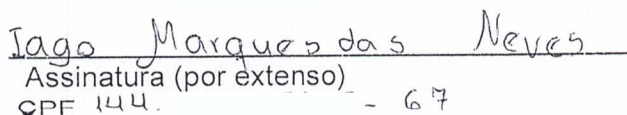 Iago Marques das Neves
Assinatura (por extenso)
CPF 144. - 67